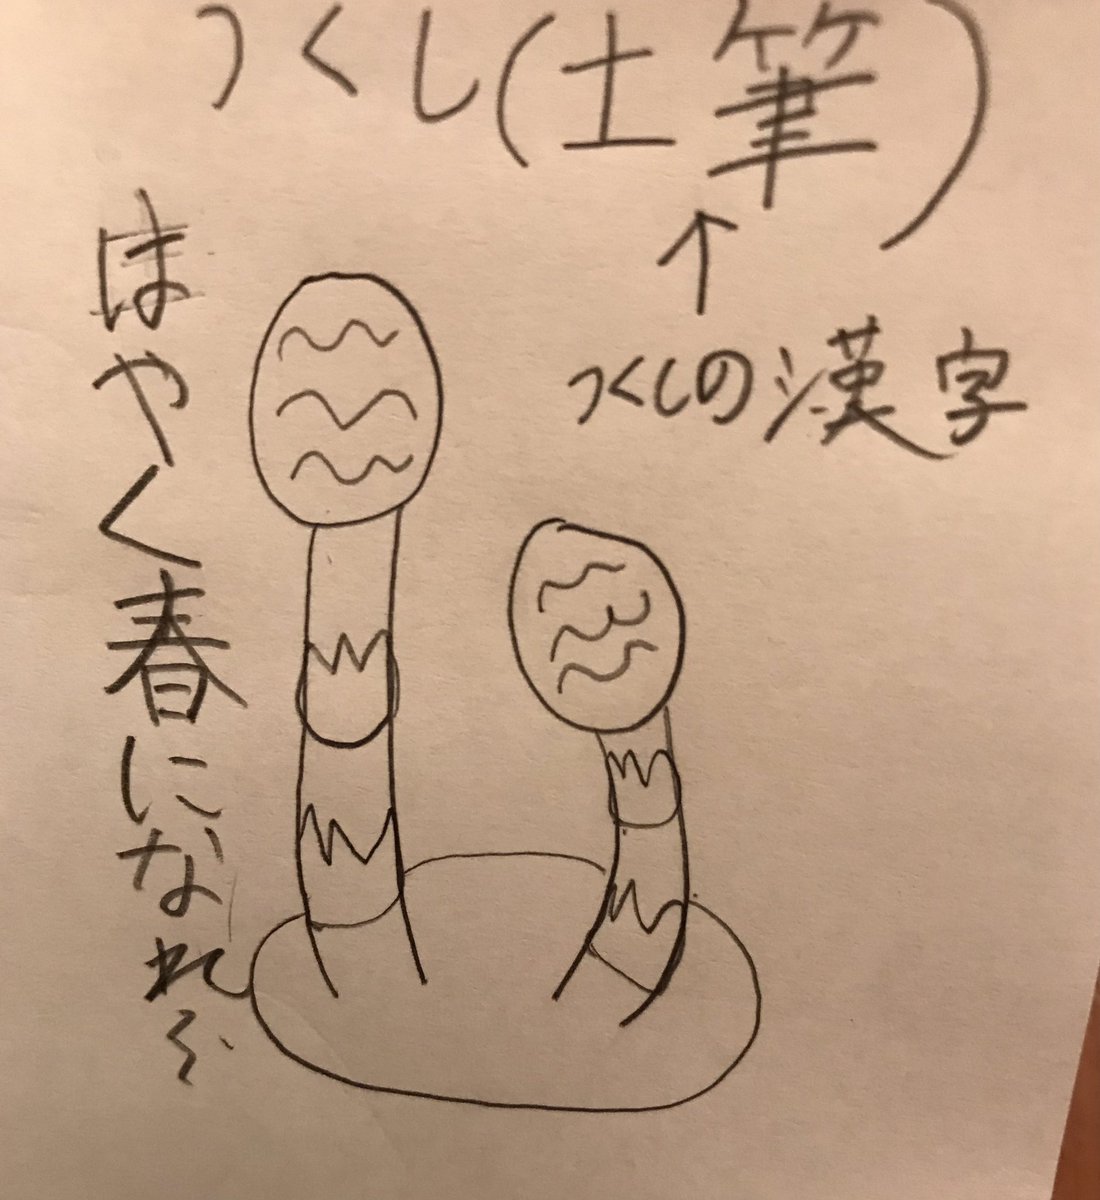 つくし(土筆)
↑
つくしの漢字
はやく春になれぞ